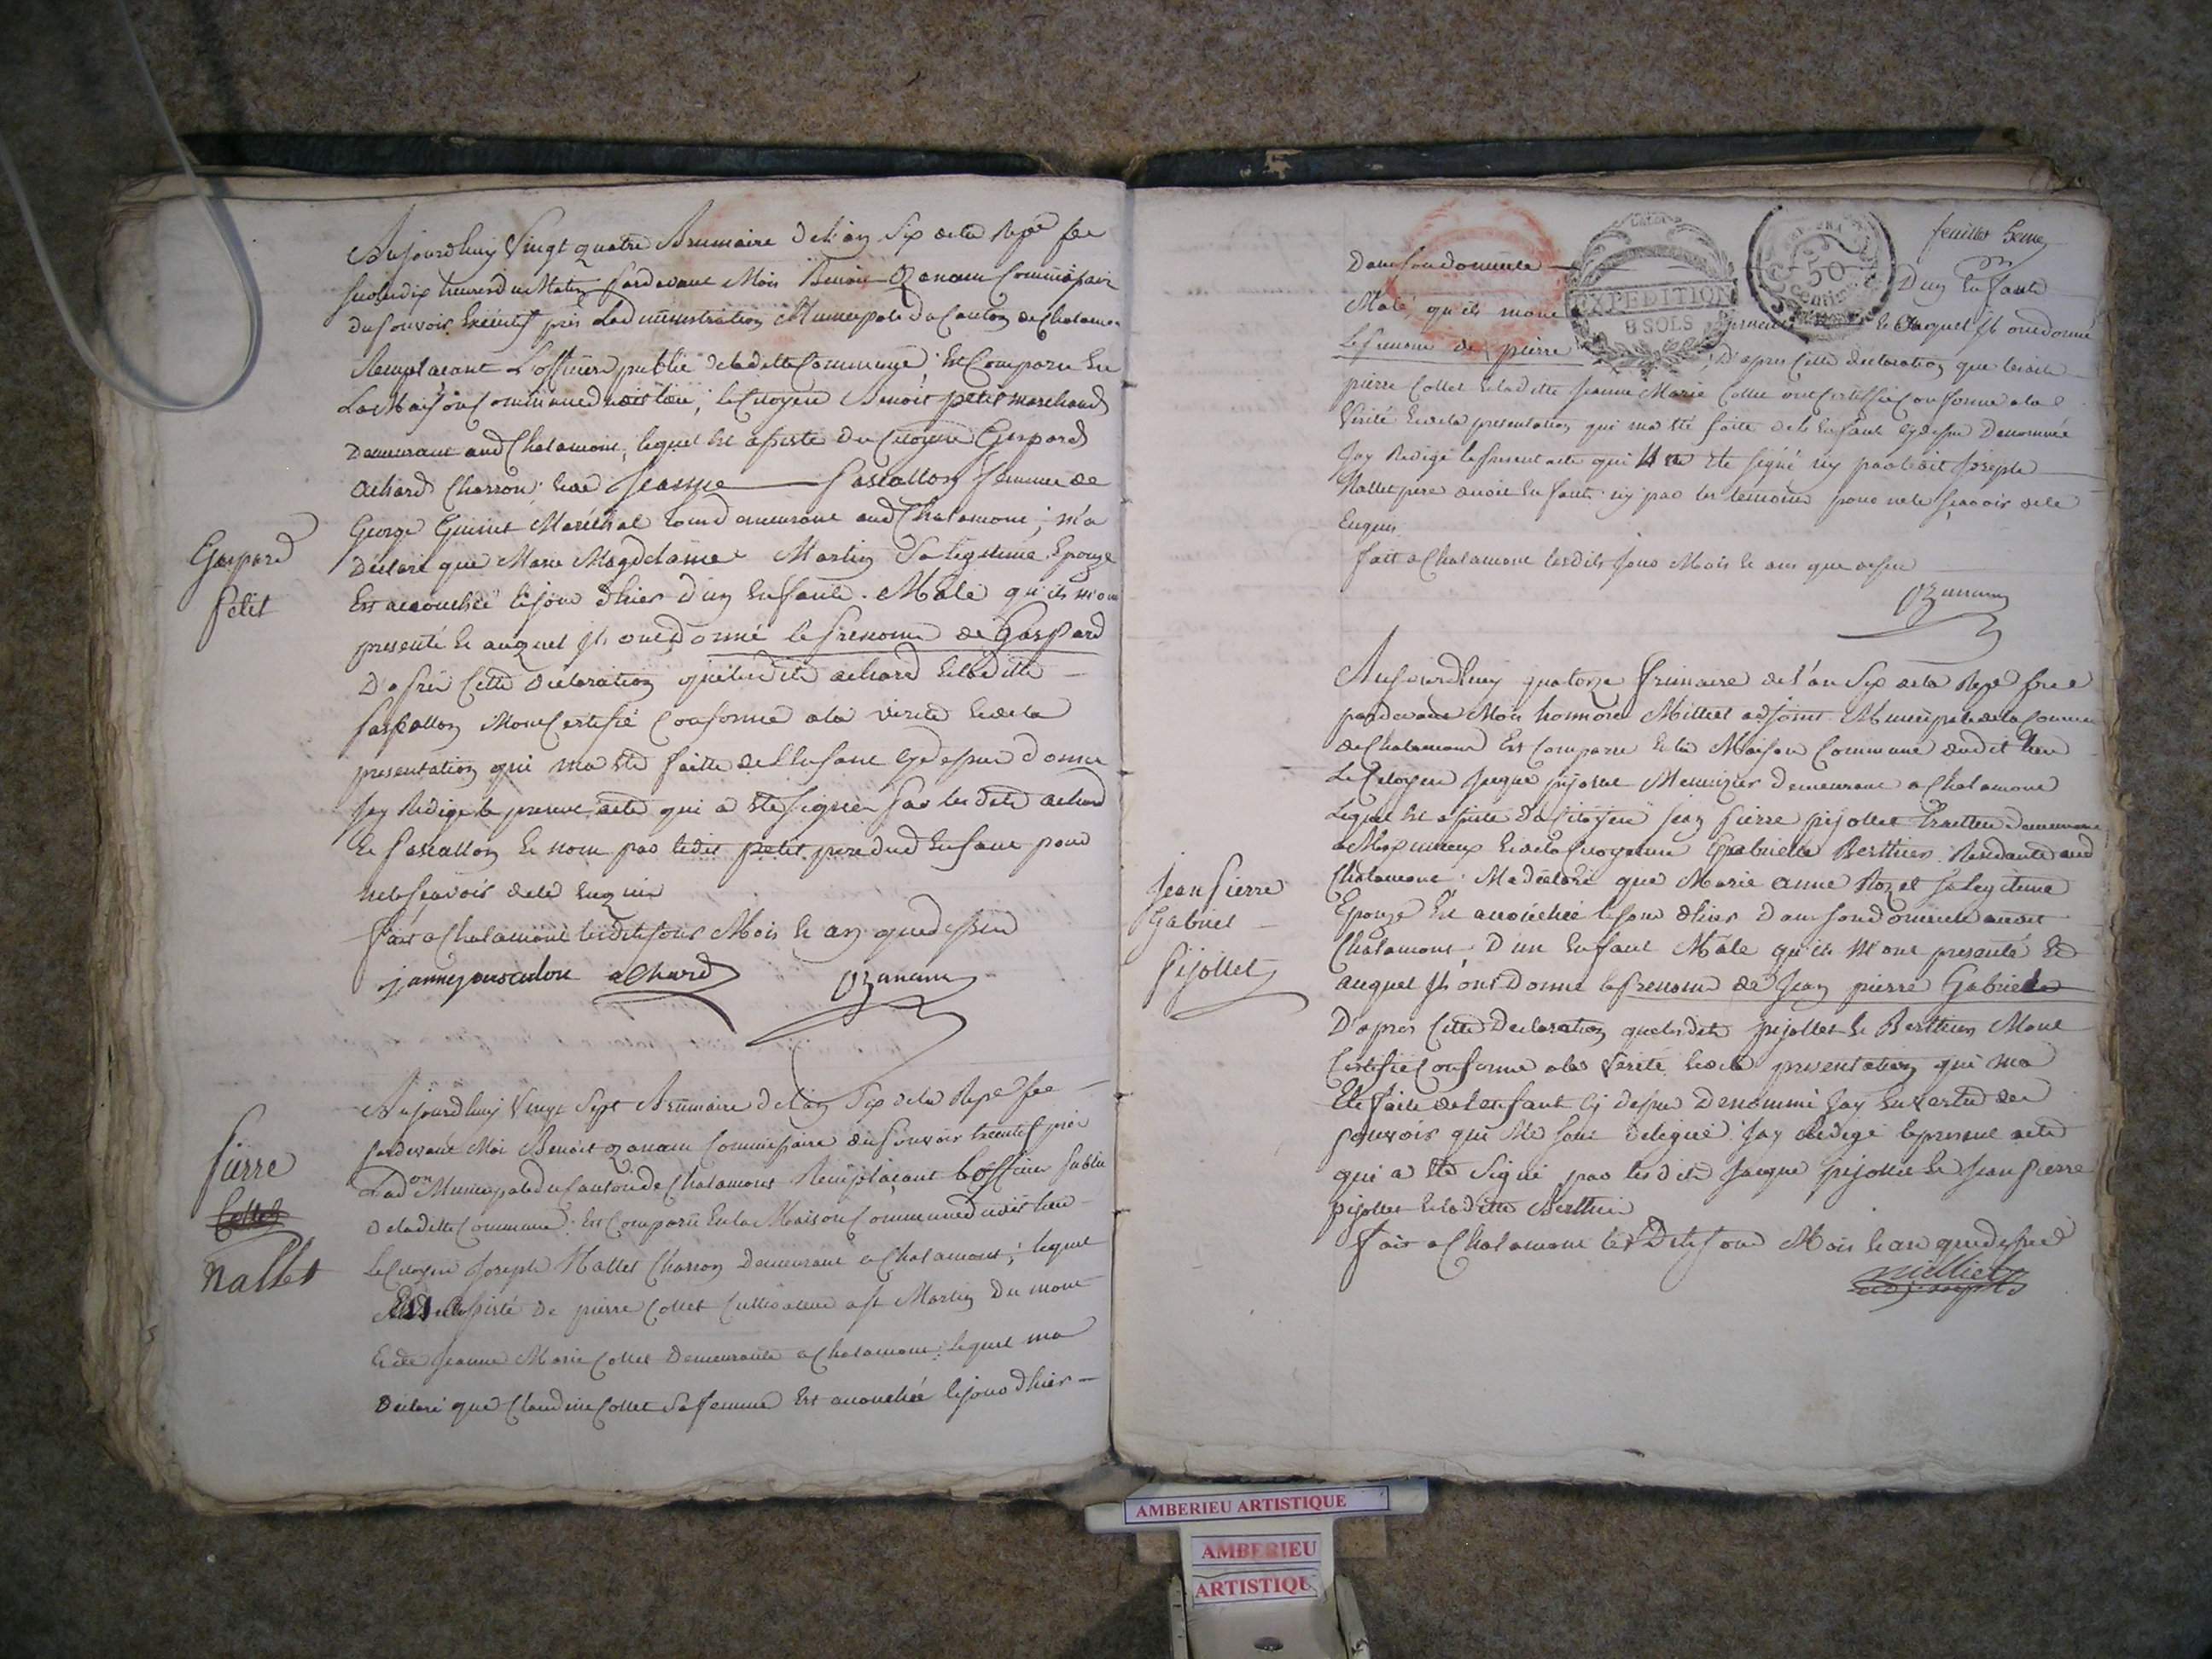 Aujourdhuy Vingt quatre Brumaire de L'an Six de la Repe fse
sur les dix heures du Matin Pardevant Moi Benoit Ozanam Commissaire
du Pouvoir Executif près Ladministration Municipale du Canton de Chalamon
Remplacant L'officier public de la ditte Commune, Est Comparu En
La Maison Commune dudit lieu, le Citoyen Benoit petit marchand
Demeurant aud Chalamont, lequel Est assisté du Citoyen Gaspard
achard Charron, Et de Jeanne Pascallon femme de
George Guinet Maréchal tous demeurant aud Chalamont, m'a
Déclaré que Marie Magdelaine Martin Sa légitime Epouze
Est accouchée le jour d'hier d'un Enfant Mâle qu'ils m'ont
presenté Et auquel Ils ont donné le Prenom de Gaspard
D'après Cette Déclaration que lesdits achard Et laditte
Pascallon M'ont Certifié Conforme a la verité Et de la
presentation qui ma été faitte de l'Enfant cy dessus denomé
Jay Redigé le present acte qui a été signé par lesdits achard
Et Pascallon Et non par ledit petit pere dud Enfant pour
ne le sçavoir de le Enquis
Fait a Chalamont lesdits jour Mois Et an que dessus
janne pascalon achard Ozanam
Gaspard
Petit
Aujourdhuy Vingt Sept Brumaire de L'an Six de la Repe fse
Pardevant Moi Benoit Ozanam Commissaire du Pouvoir Executif près
Ladon Municipale du Canton de Chalamont Remplaçant L'officier Public
de laditte Commune, Est Comparu En la Maison Commune dudit lieu
Le Citoyen Joseph Nallet Charron Demeurant a Chalamont, lequel
Est assisté de pierre Collet Cultivateur a St Martin Du mont
Et de Jeanne Marie Collet Demeurante a Chalamont, lequel ma
Déclaré que Claudine Collet Sa femme Est accouchée le jour d'hier
Pierre
Collet
Nallet
feuillet
Dans son domicile D'un Enfant
Mâle qu'ils mont Et auquel Ils ont donné
Le Prenom de pierre D'apres Cette declaration que ledit
EXPEDITION
8 SOLS
50
Centimes
pierre Collet Et laditte Jeanne Marie Collet ont Certiffié Conforme a la
Verité Et de la presentation qui ma été faite de l'Enfant cy dessus Denommé
Jay Redigé le present acte qui n'a été signé ny par ledit Joseph
Nallet pere dudit Enfant ny par les temoins pour ne le sçavoir de le
Enquis
Fait a Chalamont lesdits Jour Mois Et an que dessus
Ozanam
Aujourdhuy quatorze frimaire de l'an Six de la Repe free
pardevant Moi honnoré Milliet adjoint Municipal de la Commune
de Chalamont Est Comparu En la Maison Commune dudit lieu
Le Citoyen Jacque pijollet Menuizier demeurant a Chalamont
Lequel Est assisté du Citoyen Jean Pierre pijollet demeurant
a Meximieux Et de la Citoyenne Gabrielle Berthier Residante aud
Chalamont, Ma déclaré que Marie anne Rozet sa legitime
Epouze Est accouchée le jour d'hier Dans son domicile audit
Chalamont, D'un Enfant Mâle qu'ils m'ont presenté Et
auquel Ils ont Donné le prenom de Jean pierre Gabriel
D'apres Cette Declaration que lesdits pijollet Et Berthier Mont
Certifié Conforme a la Verité Et de la presentation qui ma
Eté faite de l'enfant cy dessus Denommé Jay En vertu des
pouvoir qui Me sont delegué Jay Redigé le present acte
qui a été Signé par lesdits Jacque pijollet Et Jean Pierre
pijollet Et laditte Berthier
Fait a Chalamont lesdits Jour Mois Et an que dessus
Milliet
adjoint
Jean Pierre
Gabriel
Pijollet
AMBERIEU ARTISTIQUE
AMBERIEU
ARTISTIQUE